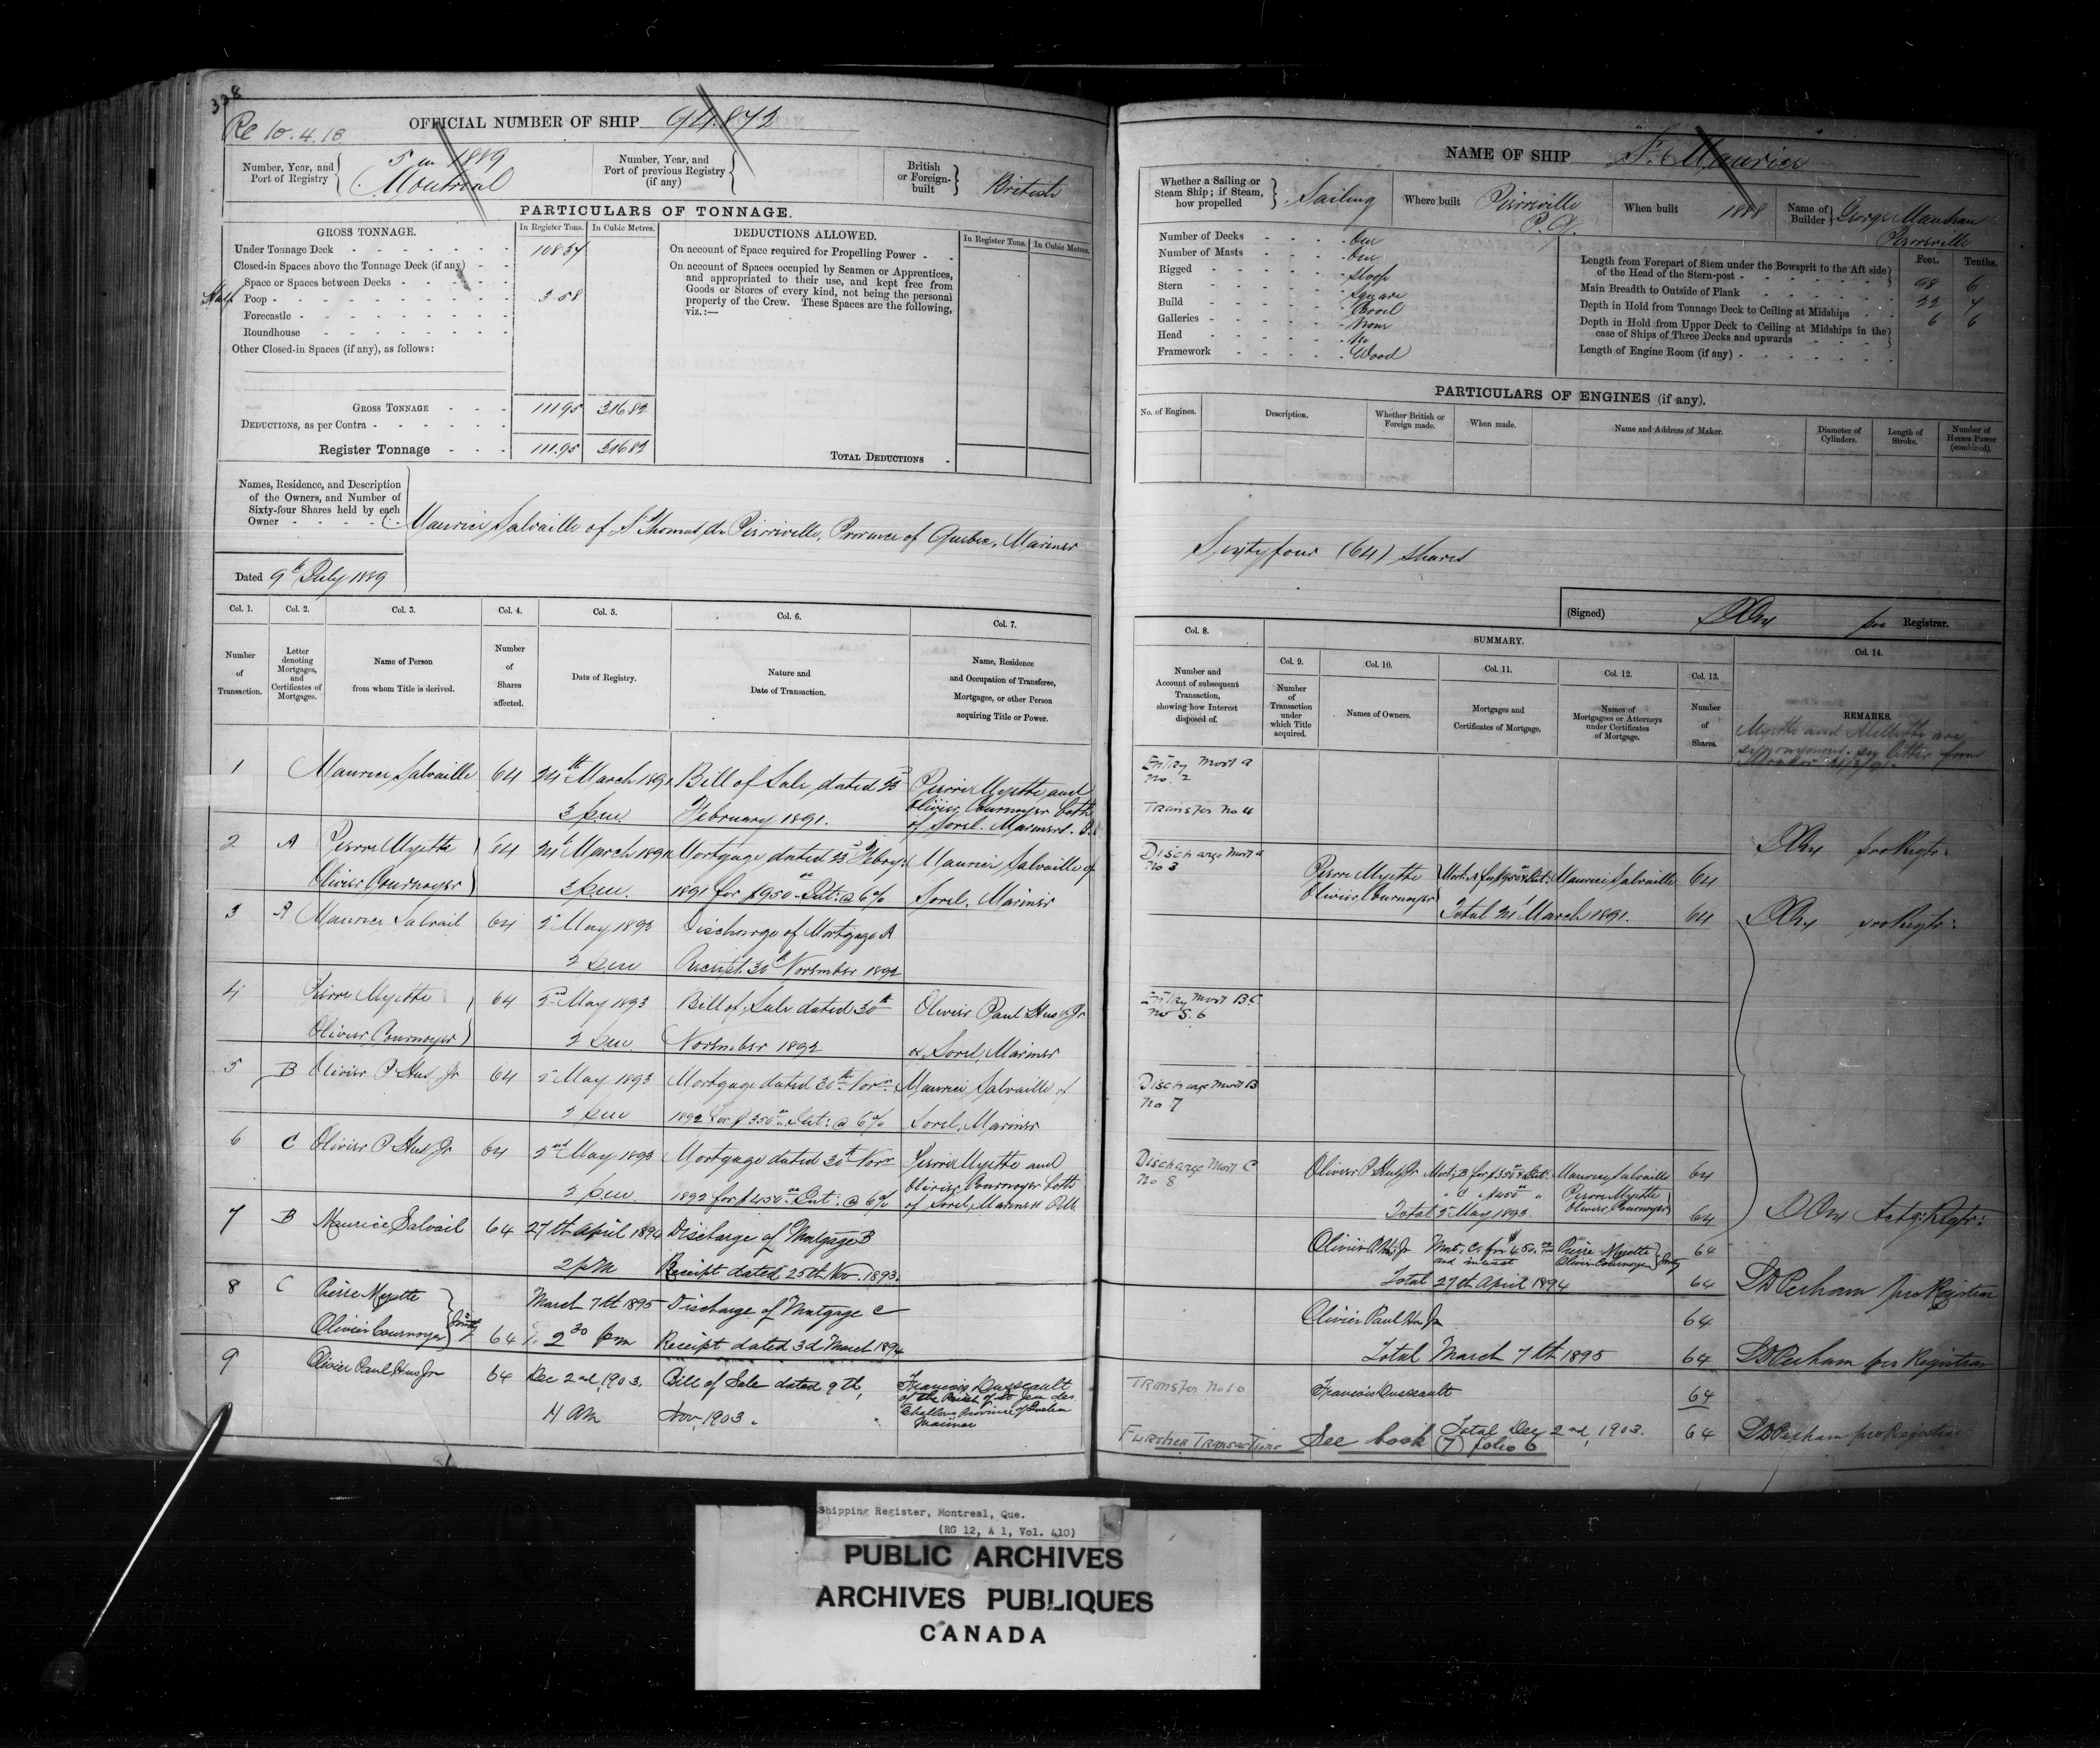 338
Re 10.4.18
OFFICIAL NUMBER OF SHIP 94.872
Number, Year, and Port of Registry
5 in 1889
Montreal
Number, Year, and Port of previous Registry (if any)
British or Foreign-built
British
PARTICULARS OF TONNAGE.
GROSS TONNAGE.
In Register Tons. In Cubic Metres.
Under Tonnage Deck 108.37
Closed-in Spaces above the Tonnage Deck (if any)
Space or Spaces between Decks
Half Poop 3.58
Forecastle
Roundhouse
Other Closed-in Spaces (if any), as follows:
GROSS TONNAGE 111.95 316.82
DEDUCTIONS, as per Contra
Register Tonnage 111.95 316.82
DEDUCTIONS ALLOWED.
In Register Tons. In Cubic Metres.
On account of Space required for Propelling Power
On account of Spaces occupied by Seamen or Apprentices, and appropriated to their use, and kept free from Goods or Stores of every kind, not being the personal property of the Crew. These Spaces are the following, viz.:—
TOTAL DEDUCTIONS
Names, Residence, and Description of the Owners, and Number of Sixty-four Shares held by each Owner
Maurice Salvaille of St Thomas de Pierreville, Province of Quebec, Mariner
Dated 9th July 1889
Col. 1. Col. 2. Col. 3. Col. 4. Col. 5. Col. 6. Col. 7.
Number of Transaction.
Letter denoting Mortgages, and Certificates of Mortgages.
Name of Person from whom Title is derived.
Number of Shares affected.
Date of Registry.
Nature and Date of Transaction.
Name, Residence and Occupation of Transferee, Mortgagee, or other Person acquiring Title or Power.
1 Maurice Salvaille 64 24th March 1891 Bill of Sale, dated 23d Pierre Myette and
3 p.m. February 1891. Olivier Cournoyer both
of Sorel. Mariners.
2 A Pierre Myette 64 24th March 1891 Mortgage dated 23d Febry: Maurice Salvaille of
Olivier Cournoyer 3 p.m. 1891 for $950 Int: @ 6% Sorel, Mariner
3 A Maurice Salvail 64 2d May 1893 Discharge of Mortgage A
2 p.m. Receipt 30th November 1892
4 Pierre Myette 64 2nd May 1893 Bill of Sale dated 30th Olivier Paul Hus Jr
Olivier Cournoyer 2 p.m. November 1892 of Sorel, Mariner
5 B Olivier P Hus Jr 64 2d May 1893 Mortgage dated 30th Novr. Maurice Salvaille of
2 p.m. 1892 for $350 Int: @ 6% Sorel, Mariner
6 C Olivier P Hus Jr 64 2nd May 1893 Mortgage dated 30th Novr Pierre Myette and
2 p.m. 1892 for $450 Int: @ 6% Olivier Cournoyer both
of Sorel, Mariners
7 B Maurice Salvail 64 27th April 1894 Discharge of Mortgage B
2 p.m Receipt dated 25th Nov. 1893.
8 C Pierre Myette March 7th 1895 Discharge of Mortgage C
Olivier Cournoyer Jointly 64 2 30 pm Receipt dated 3d March 1894
9 Olivier Paul Hus Jr 64 Dec 2nd, 1903. Bill of Sale dated 9th, Francois Dusseault
11 AM Nov, 1903. of the Parish of St Jean des
Chaillons Province of Quebec
Mariner
NAME OF SHIP St Maurice
Whether a Sailing or Steam Ship; if Steam, how propelled
Sailing
Where built Pierreville P.Q.
When built 1888
Name of Builder George Maudran
Pierreville
Number of Decks One
Number of Masts One
Rigged Sloop
Stern Square
Build Carvel
Galleries None
Head No
Framework Wood
Feet. Tenths.
Length from Forepart of Stem under the Bowsprit to the Aft side of the Head of the Stern-post 98 6
Main Breadth to Outside of Plank 22 7
Depth in Hold from Tonnage Deck to Ceiling at Midships 6 6
Depth in Hold from Upper Deck to Ceiling at Midships in the case of Ships of Three Decks and upwards
Length of Engine Room (if any)
PARTICULARS OF ENGINES (if any).
No. of Engines.
Description.
Whether British or Foreign made.
When made.
Name and Address of Maker.
Diameter of Cylinders.
Length of Stroke.
Number of Horses Power (combined).
Sixtyfour (64) shares
(Signed) pro Registrar.
Col. 8.
SUMMARY.
Col. 14.
Col. 9. Col. 10. Col. 11. Col. 12. Col. 13.
Number and Account of subsequent Transaction, showing how Interest disposed of.
Number of Transaction under which Title acquired.
Names of Owners.
Mortgages and Certificates of Mortgage.
Names of Mortgagees or Attorneys under Certificates of Mortgage.
Number of Shares.
REMARKS.
Myette and Millette are
synonymous. see letter from
Entry Mort A
No. 2
Transfer No 4
pro Regtr:
Discharge Mort A
No 3
Pierre Myette Mort: A for $950 & Int: Maurice Salvaille 64
Olivier Cournoyer
Total 24 March 1891. 64
pro Regtr:
Entry Mort B C
No 5. 6
Discharge Mort B
No 7
Discharge Mort C
No 8
Olivier P. Hus Jr Mort: B for $350 & Int: Maurice Salvaille 64
" C " $450 " Pierre Myette
Olivier Cournoyer
Total 2d May 1893. 64
Actg: Regtr:
Olivier P. Hus Jr Mort. C. for $450. Pierre Myette 64
and interest Olivier Cournoyer Jointly
Total 27th April 1894 64
Perham pro Registrar
Olivier Paul Hus Jr 64
Total March 7th 1895 64
Perham pro Registrar
Transfer No 10
Francois Dusseault 64
Total Dec 2nd, 1903. 64
Perham pro Registrar
Further Transactions See book (7) folio 6
Shipping Register, Montreal, Que.
(RG 12, A 1, Vol. 410)
PUBLIC ARCHIVES
ARCHIVES PUBLIQUES
CANADA